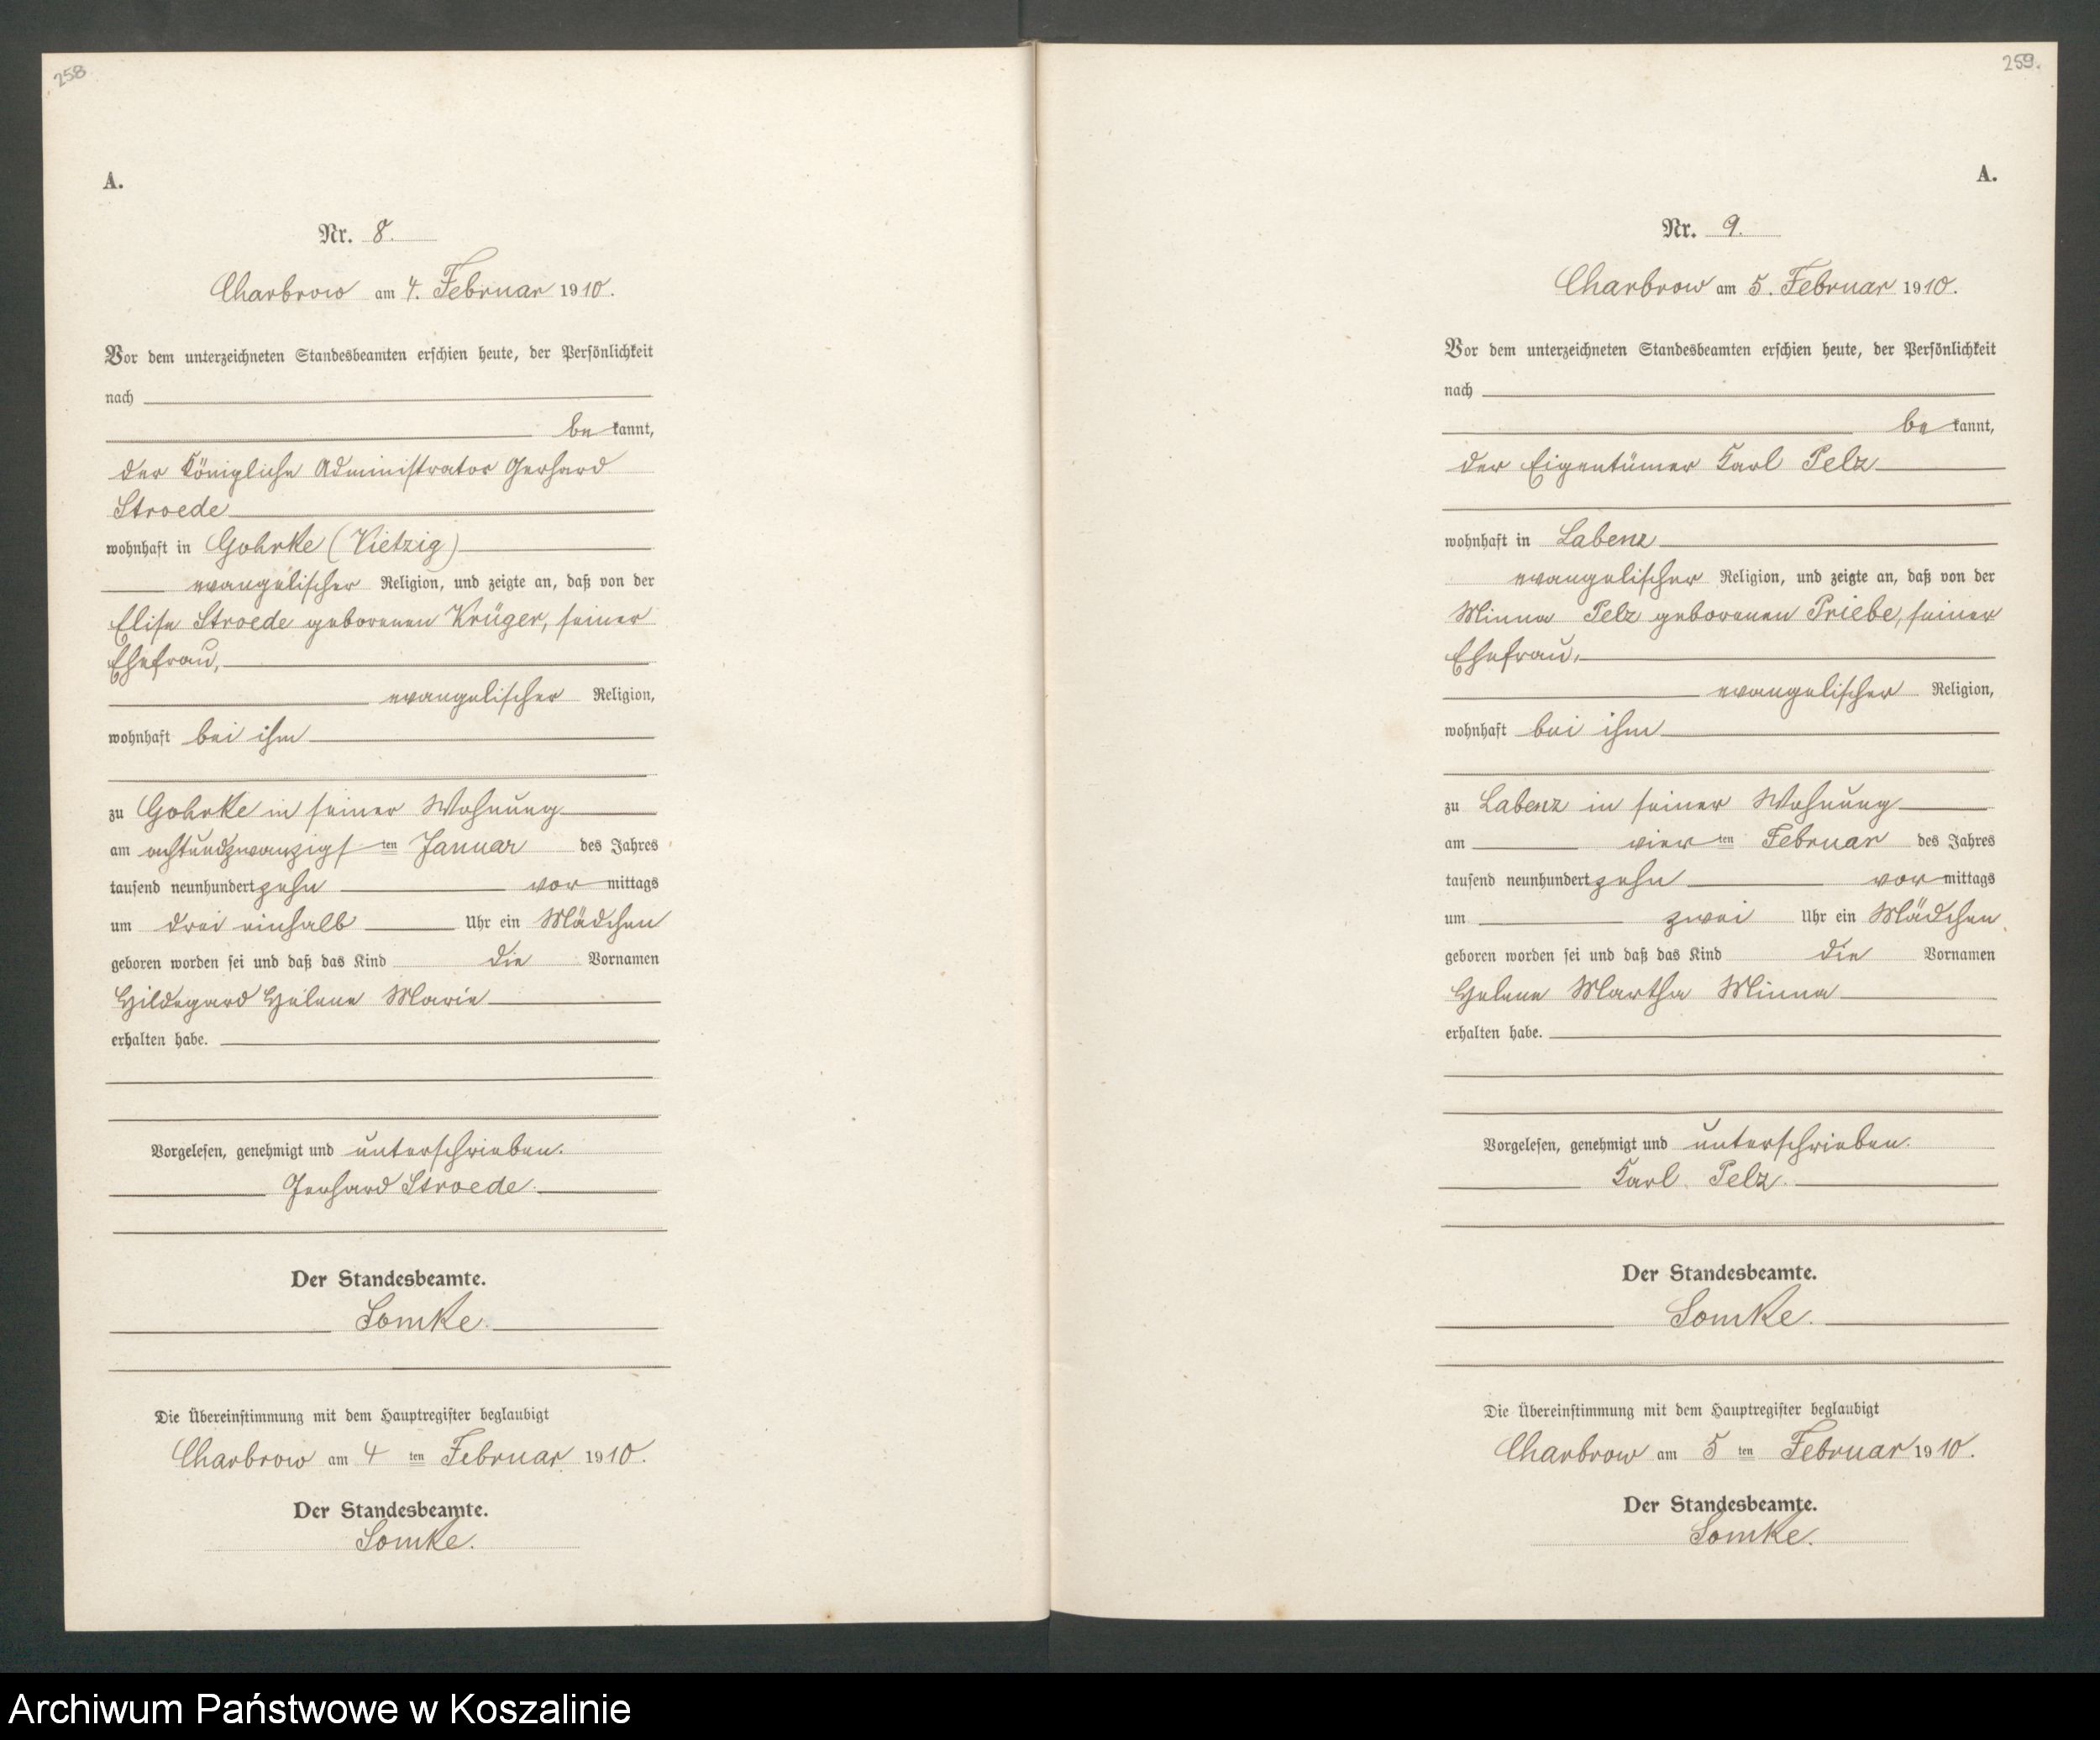 258
A.
Nr. 8.
Charbrow am 4. Februar 1910.
Vor dem unterzeichneten Standesbeamten erschien heute, der Persönlichkeit
nach
be kannt,
der Königliche Administrator Gerhard
Stroede
wohnhaft in Gohrke (Vietzig)
evangelischer Religion, und zeigte an, daß von der
Elise Stroede geborenen Krüger, seiner
Ehefrau,
evangelischer Religion,
wohnhaft bei ihm
zu Gohrke in seiner Wohnung
am achtundzwanzigsten Januar des Jahres
tausend neunhundert zehn vor mittags
um drei einhalb Uhr ein Mädchen
geboren worden sei und daß das Kind die Vornamen
Hildegard Helene Marie
erhalten habe.
Vorgelesen, genehmigt und unterschrieben.
Gerhard Stroede.
Der Standesbeamte.
Lomke.
Die Übereinstimmung mit dem Hauptregister beglaubigt
Charbrow am 4 ten Februar 1910.
Der Standesbeamte.
Lomke.
259.
A.
Nr. 9.
Charbrow am 5. Februar 1910.
Vor dem unterzeichneten Standesbeamten erschien heute, der Persönlichkeit
nach
be kannt,
der Eigentümer Karl Pelz
wohnhaft in Labenz
evangelischer Religion, und zeigte an, daß von der
Minna Pelz geborenen Priebe, seiner
Ehefrau,
evangelischer Religion,
wohnhaft bei ihm
zu Labenz in seiner Wohnung
am vier ten Februar des Jahres
tausend neunhundert zehn vor mittags
um zwei Uhr ein Mädchen
geboren worden sei und daß das Kind die Vornamen
Helene Martha Minna
erhalten habe.
Vorgelesen, genehmigt und unterschrieben.
Karl Pelz.
Der Standesbeamte.
Lomke.
Die Übereinstimmung mit dem Hauptregister beglaubigt
Charbrow am 5 ten Februar 1910.
Der Standesbeamte.
Lomke.
Archiwum Państwowe w Koszalinie